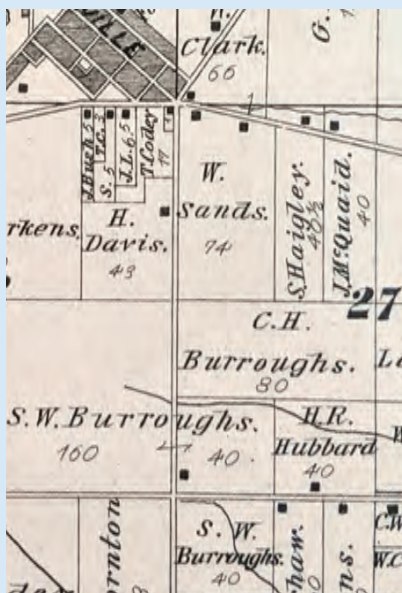 VILLE
Clark.
66
G.
J. Bugh 5
F.C. 3
S. 5
J.L. 6.5
T. Codey
17
W.
Sands.
74
S. Haigley.
48½
J. McQuaid.
40
rkens.
H.
Davis.
43
27
C.H.
Burroughs.
80
S.W. Burroughs.
160
40
H.R.
Hubbard
40
W
S. W.
Burroughs.
40
rnton
haw.
ns.
C.W
W.C